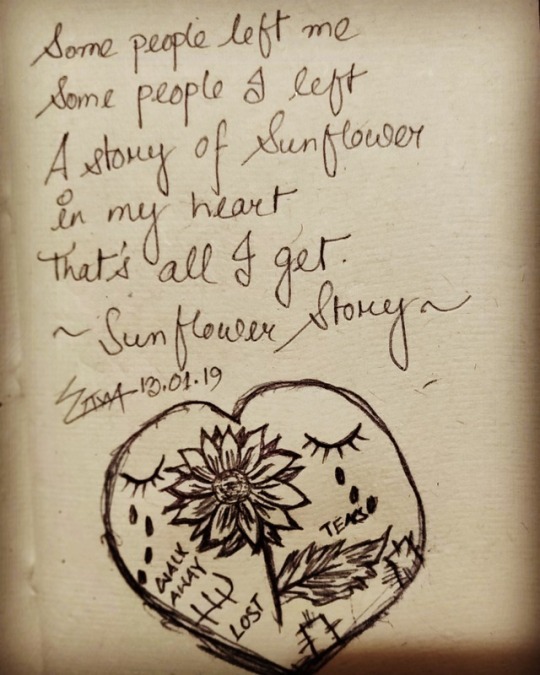 Some people left me
Some people I left
A story of Sunflower
in my heart
that's all I get.
~ Sunflower Story ~
13.01.19
TEARS
WALK
AWAY
LOST